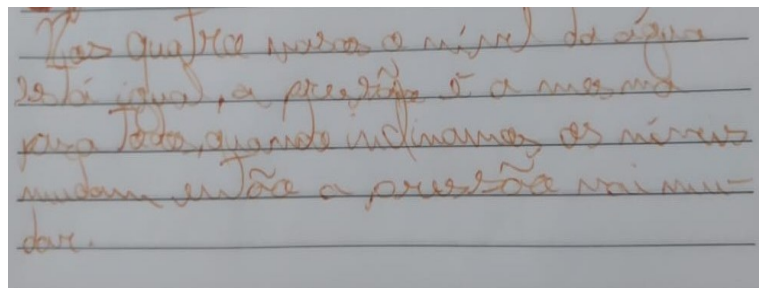 Nas quatro vasos o nível da água
está igual, a pressão é a mesma
para todos, quando inclinamos os níveis
mudam então a pressão vai mu-
dar.